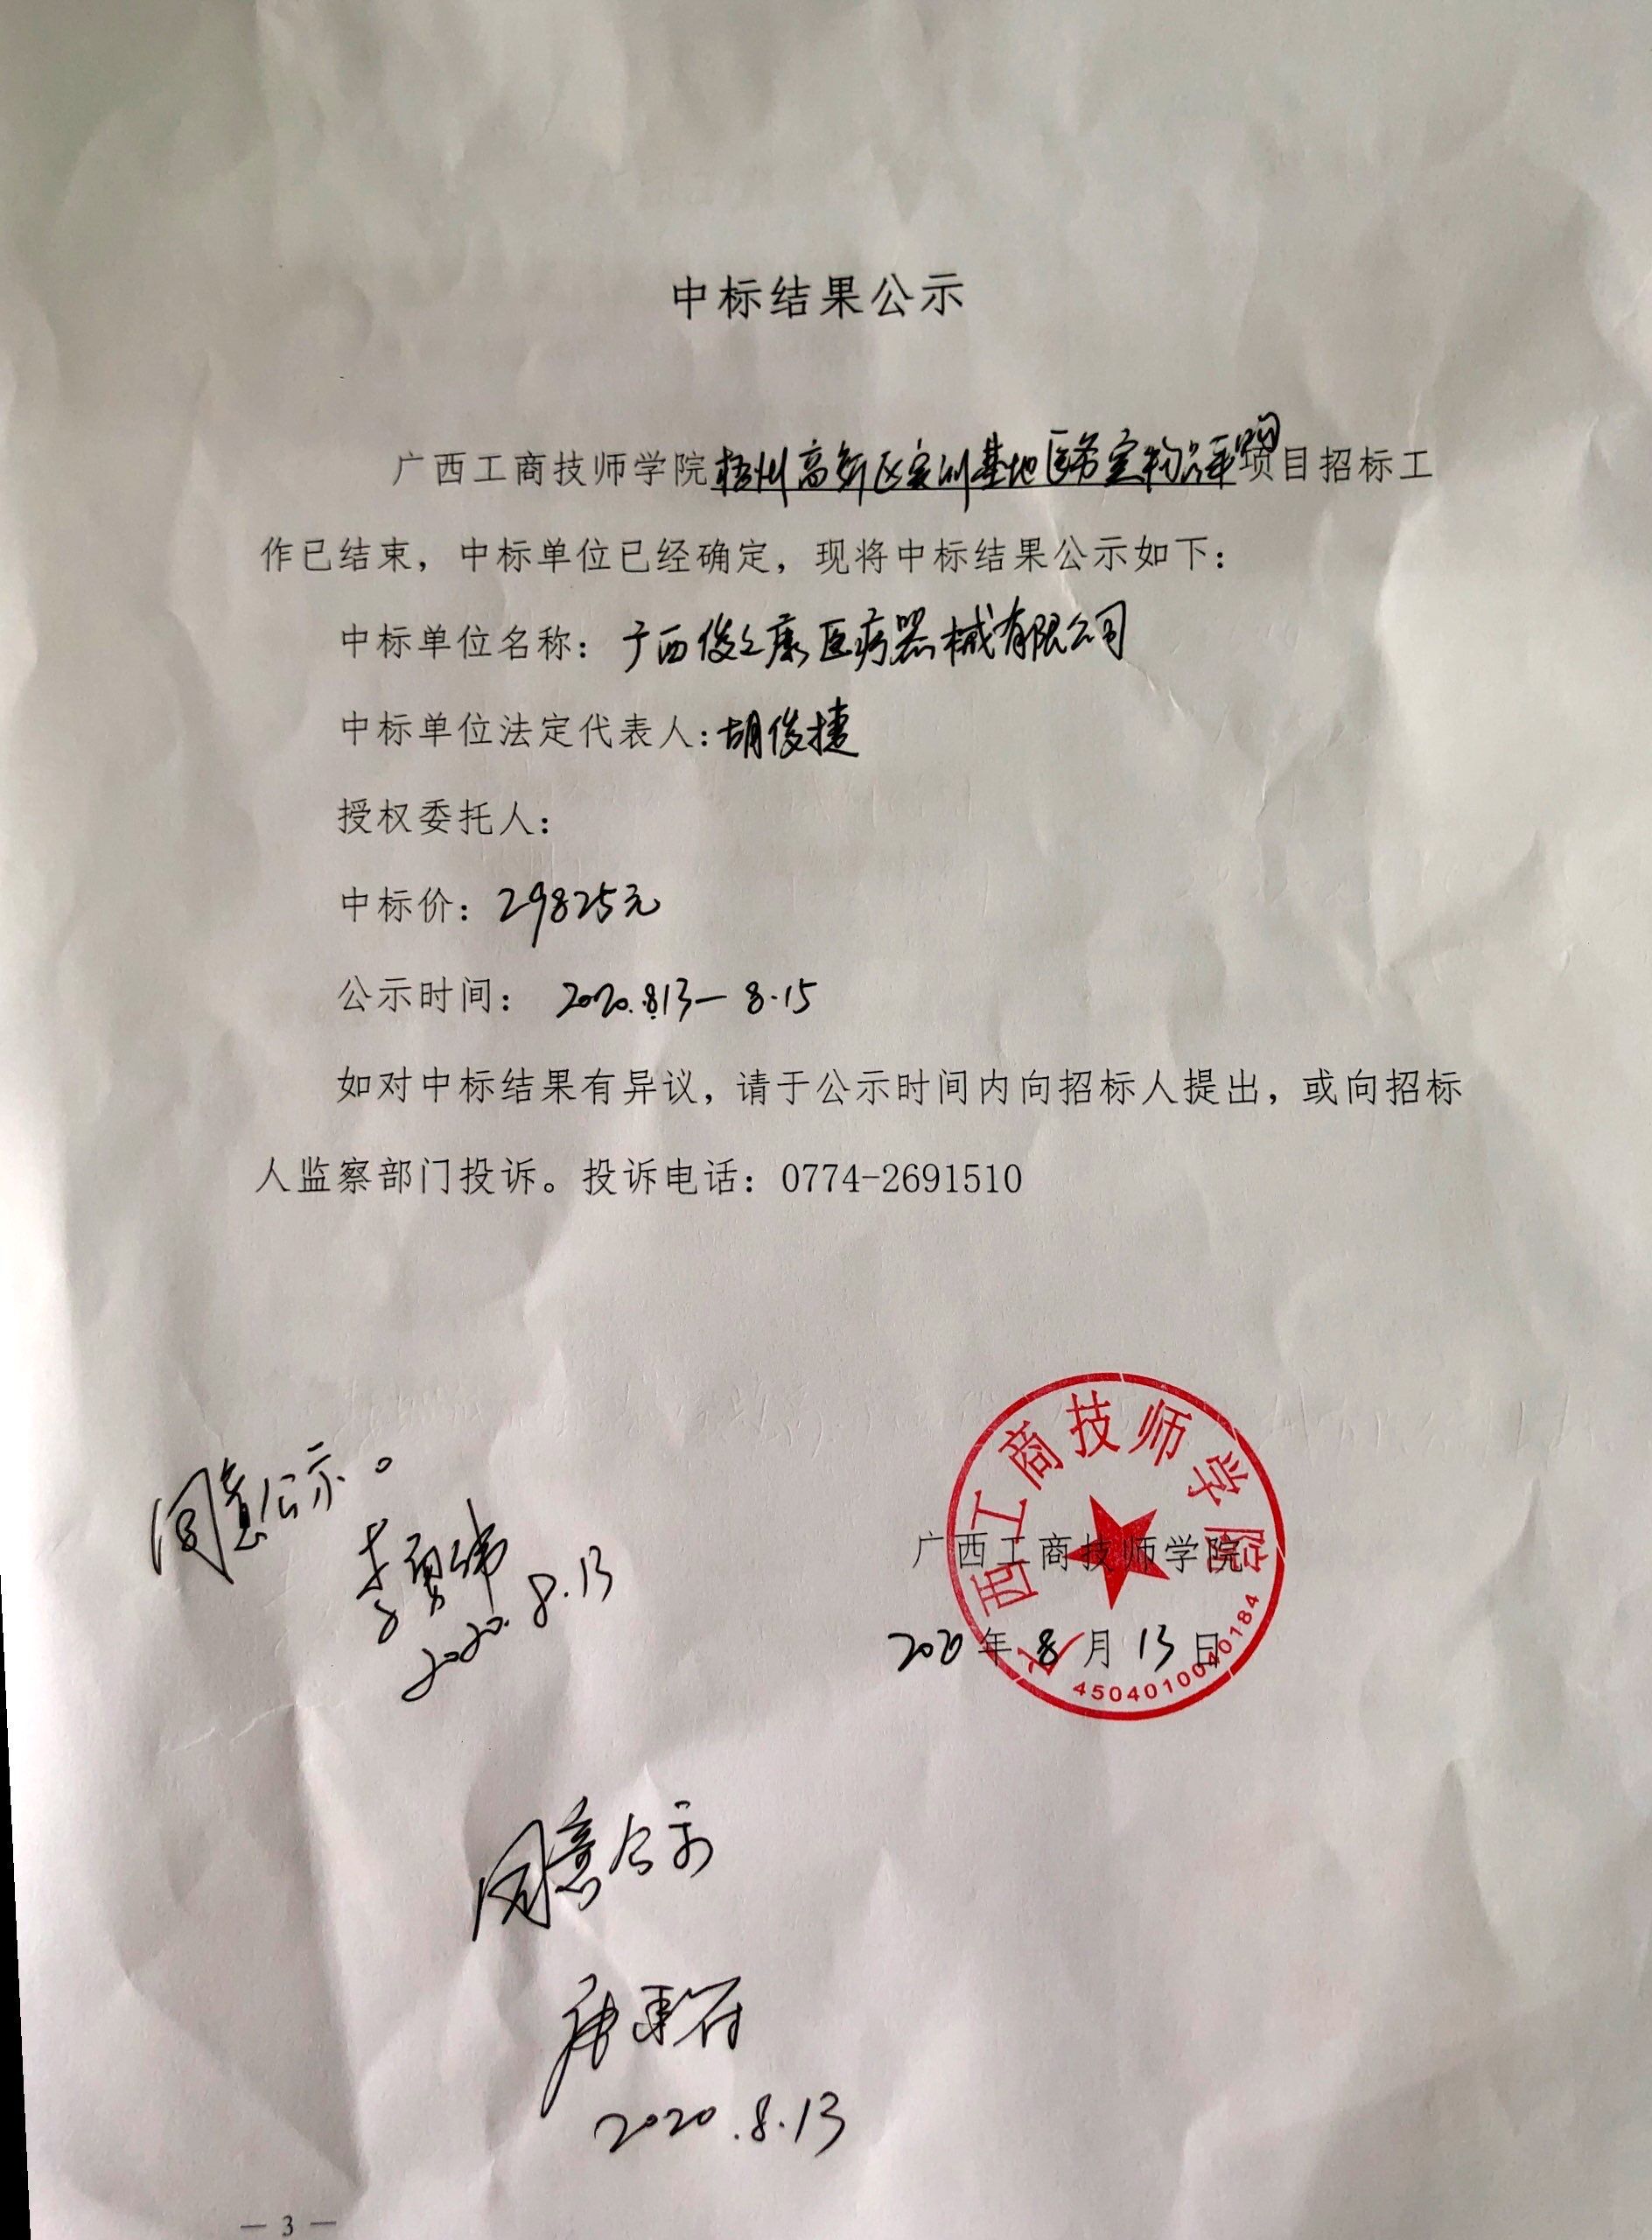 中标结果公示
广西工商技师学院梧州高新区实训基地医务室物品采购项目招标工
作已结束，中标单位已经确定，现将中标结果公示如下：
中标单位名称：广西俊之康医疗器械有限公司
中标单位法定代表人：胡俊捷
授权委托人：
中标价：29825元
公示时间： 2020.8.13—8.15
如对中标结果有异议，请于公示时间内向招标人提出，或向招标
人监察部门投诉。投诉电话：0774-2691510
广西工商技师学院
广西工商技师学院
2020年8月13日
4504010040184
同意公示。
2020.8.13
同意公示
2020.8.13
— 3 —